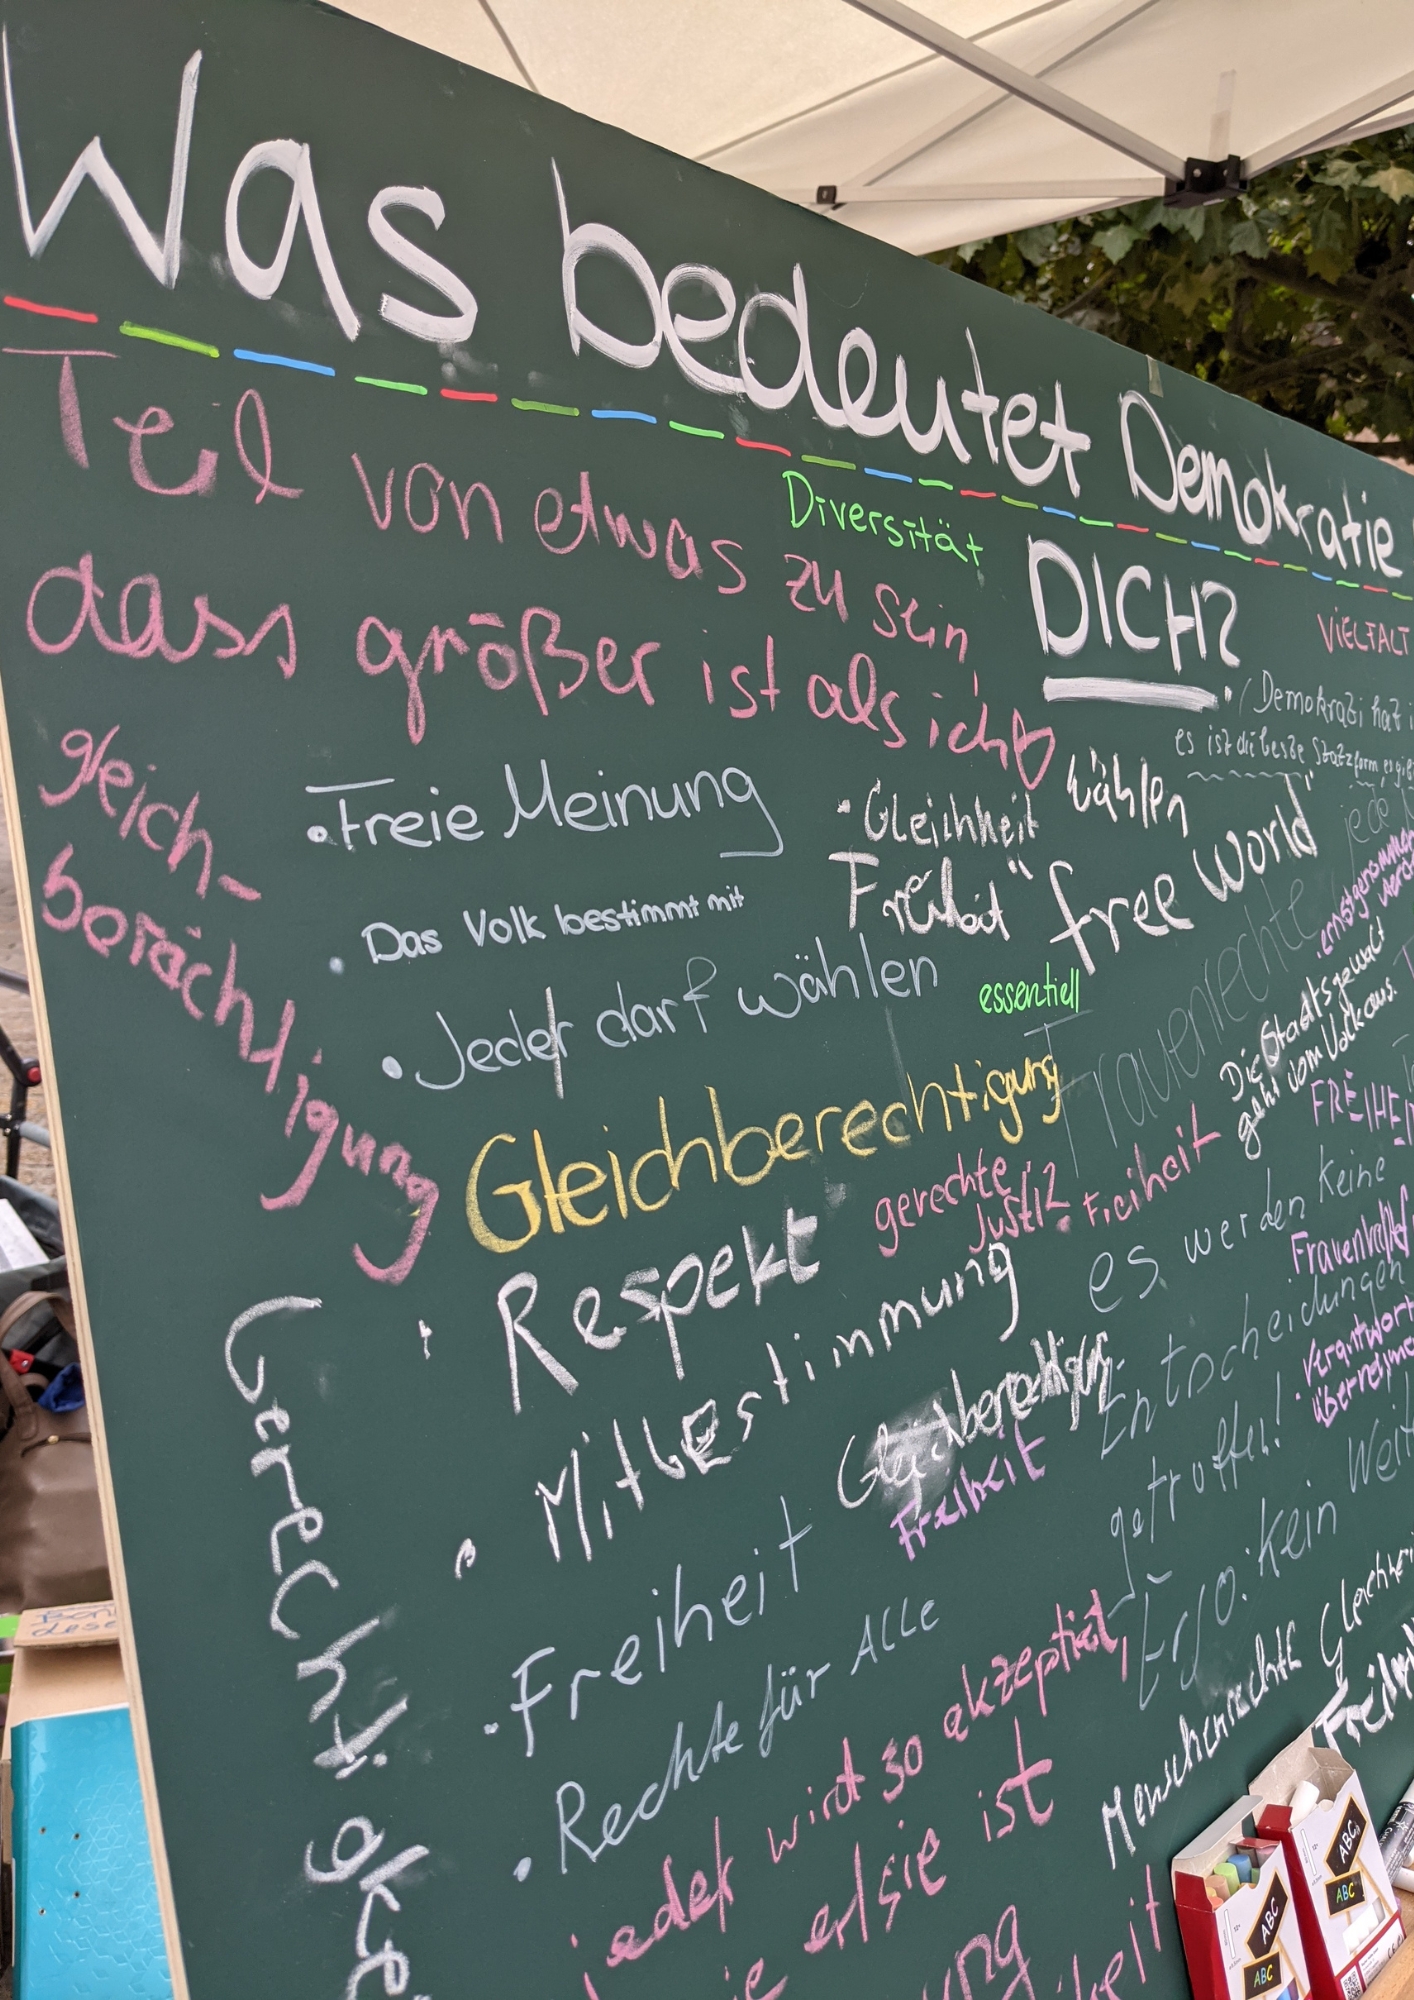 Was bedeutet Demokratie
DICH?
Diversität
VIELFALT
Teil von etwas zu sein,
dass größer ist als ich
(Demokrazi hat
es ist die beste Statzform es gibt
gleich-
berächtigung
• Freie Meinung
• Gleichheit
wählen
Freiheit
"free World"
jede
• Das Volk bestimmt mit
• Jeder darf wählen
essentiell
Frauenrechte
• ernstgenommen
Die Staatsgewalt
geht vom Volk aus.
Gleichberechtigung
gerechte
Justiz
• Freiheit
FREIHEIT
Respekt
• Mitbestimmung
es werden keine
Entscheidungen
getroffen!
Ergo: kein
• Verantwort
übernehme
Gleichberechtigung
Freiheit
• Freiheit
• Rechte für ALLE
Gerechtigke
jeder wird so akzeptiert,
wie er/sie ist
Menschenrechte
Gleichhei
Freih
ung
heit
ABC
ABC
ABC
ABC